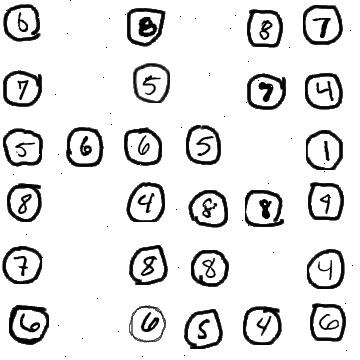 6 8 8 7
7 5 7 4
5 6 6 5 1
8 4 8 8 4
7 8 8 4
6 6 5 4 6